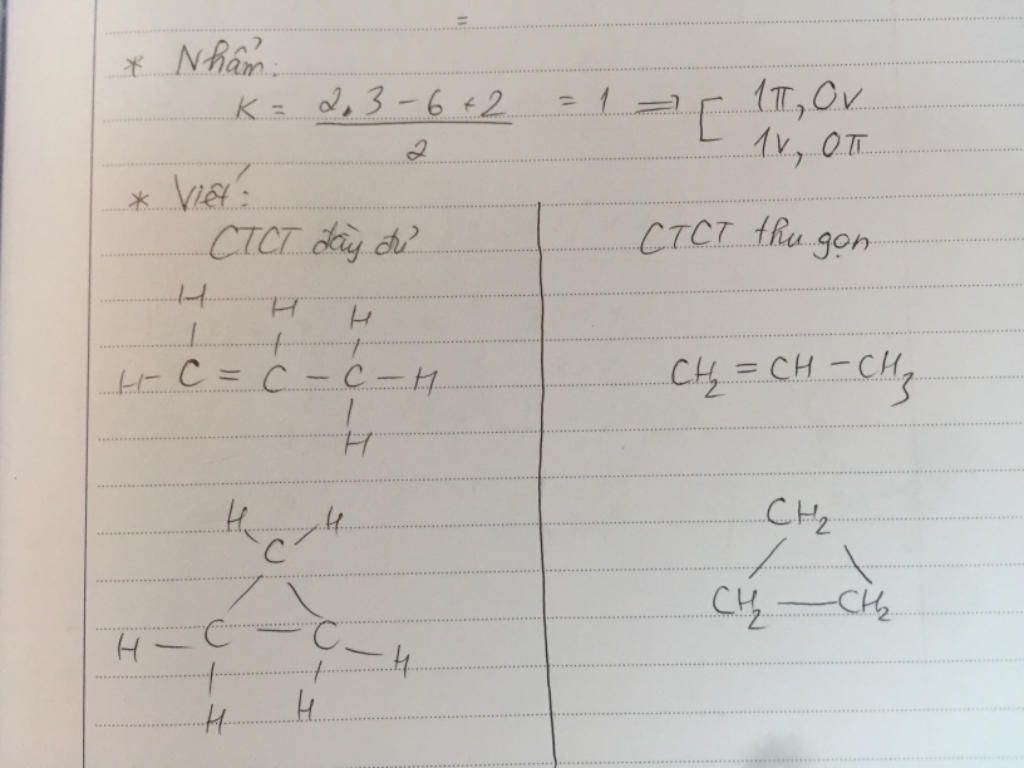 =
* Nhẩm:
K = 2.3 - 6 + 2 / 2 = 1 ⇒ [ 1π, 0v
1v, 0π
* Viết:
CTCT đầy đủ
CTCT thu gọn
H H H
H - C = C - C - H
H
CH2 = CH - CH3
H H
C
H - C - C - H
H H
CH2
CH2 - CH2